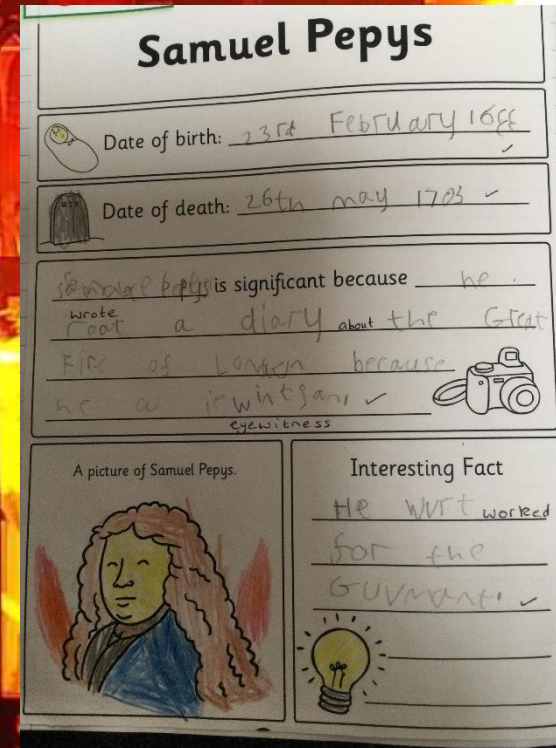 Samuel Pepys
Date of birth: 23rd February 16
Date of death: 26th may 1703
pepys is significant because he
wrote
root a diary about the Great
Fire of London because
he a
eyewitness
A picture of Samuel Pepys.
Interesting Fact
He wurt worked
for the
GUVmant.